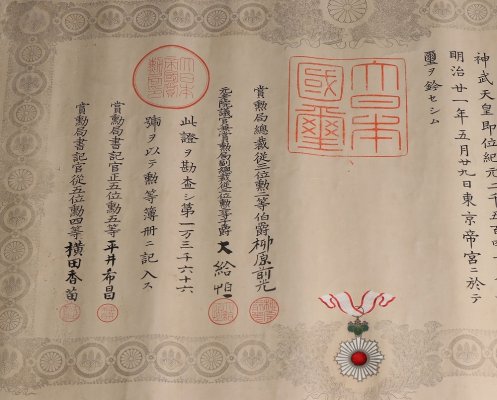 神武天皇即位紀元二千五百四十
明治廿一年五月廿九日東京帝宮ニ於テ
璽ヲ鈐セシム
大日本
國璽
賞勲局總裁從三位勲一等伯爵柳原前光
元老院議官兼賞勲局副總裁從二位勲二等子爵大給恒
此證ヲ勘査シ第一万三千六十六
號ヲ以テ勲等簿冊ニ記入ス
賞勲局書記官正五位勲五等平井希昌
賞勲局書記官從五位勲四等横田香苗